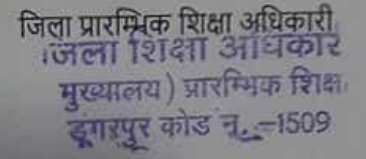 जिला प्रारम्भिक शिक्षा अधिकारी
जिला शिक्षा अधिकार
मुख्यालय) प्रारम्भिक शिक्ष
डूंगरपुर कोड नं.-1509